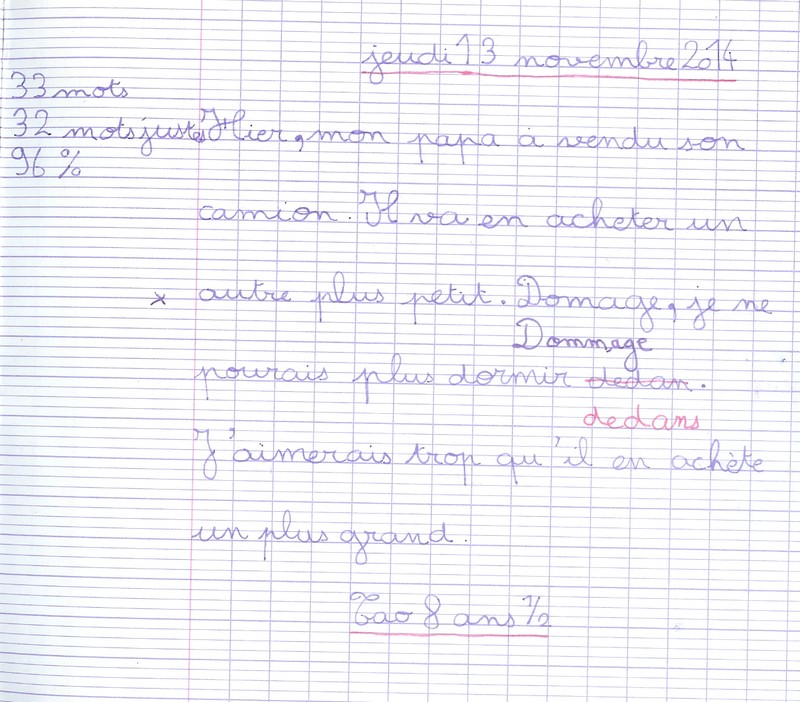 jeudi 13 novembre 2014
33 mots
32 mots justes
96 %
Hier, mon papa à vendu son
camion. Il va en acheter un
x autre plus petit. Domage, je ne
Dommage
pourais plus dormir dedan.
dedans
J'aimerais trop qu'il en achète
un plus grand.
Tao 8 ans 1/2